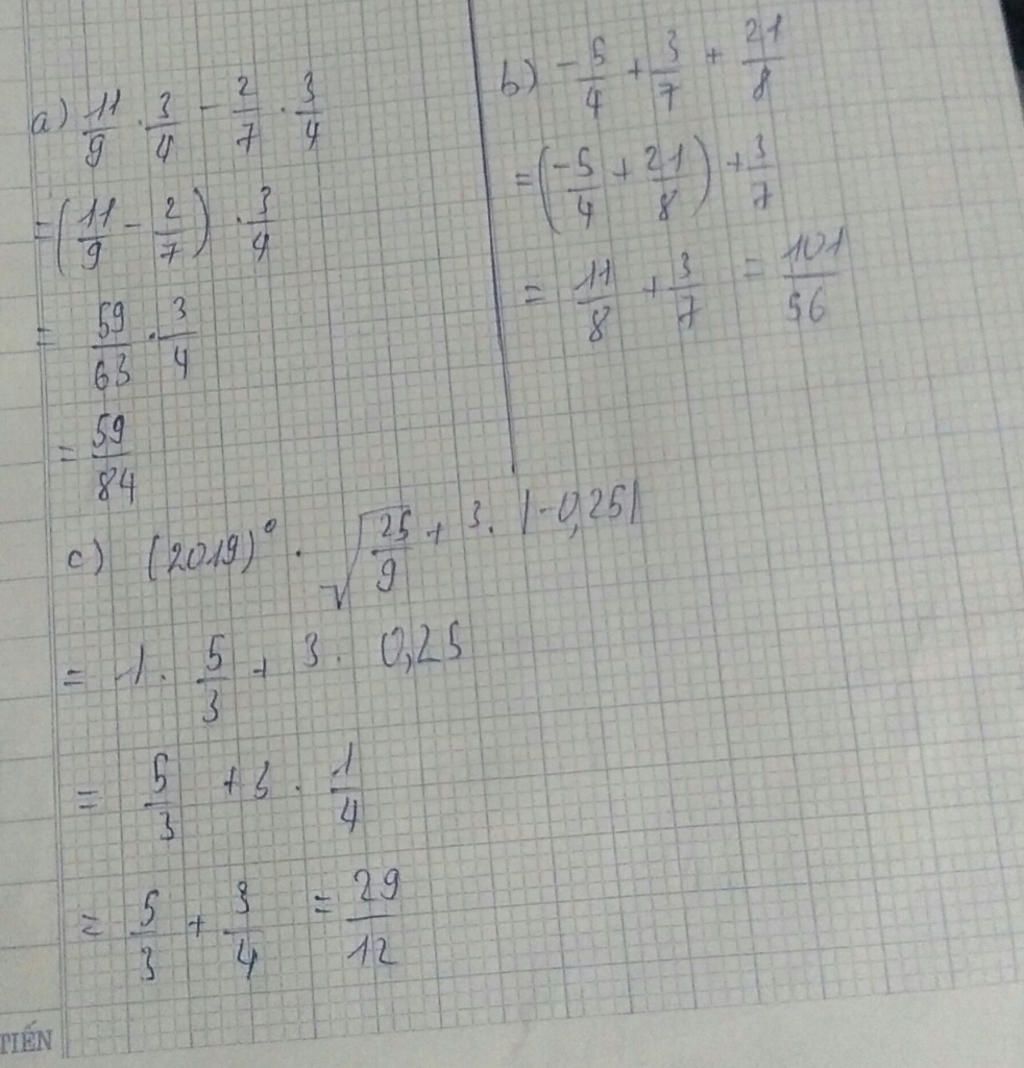 a) 11/9 . 3/4 - 2/7 . 3/4
= (11/9 - 2/7) . 3/4
= 59/63 . 3/4
= 59/84
b) -5/4 + 3/7 + 21/8
= (-5/4 + 21/8) + 3/7
= 11/8 + 3/7 = 101/56
c) (2019)⁰ . √(25/9) + 3 . |-0,25|
= 1 . 5/3 + 3 . 0,25
= 5/3 + 3 . 1/4
= 5/3 + 3/4 = 29/12
TIẾN